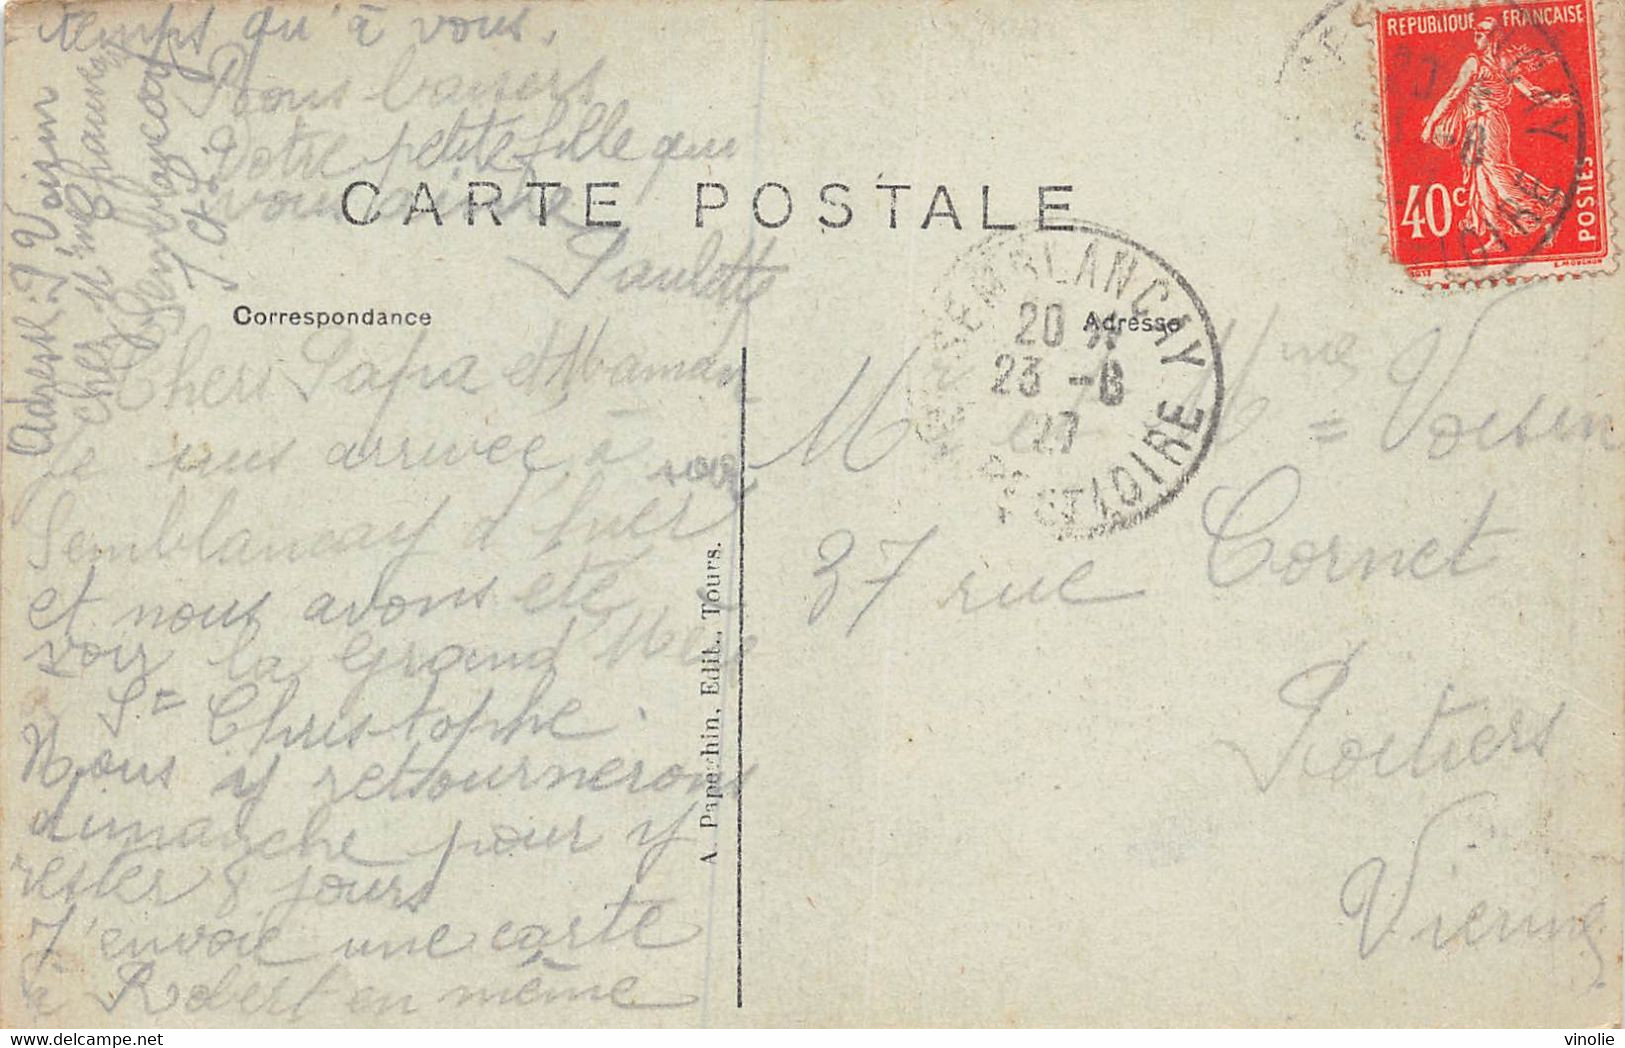 Chers Papa et Maman
Je suis arrivée à
Semblancay d'hier soir
et nous avons été
voir la Grand Mère
St= Christophe.
Nous y retournerons
dimanche pour y
rester 8 jours
J'envoie une carte
à Robert en même
temps qu'à vous.
Bons baisers
Votre petite fille qui
vous aime
Paulette
Adresse: P Voisin
chez
Semblançay
I. et L.
CARTE POSTALE
Correspondance
Adresse
Mr et Mme = Voisin
37 rue Cornet
Poitiers
Vienne
A. Papeghin, Edit., Tours.
REPUBLIQUE FRANÇAISE
40c
POSTES
SEMBLANÇAY
20 H
23 -6
27
ET LOIRE
vinolie